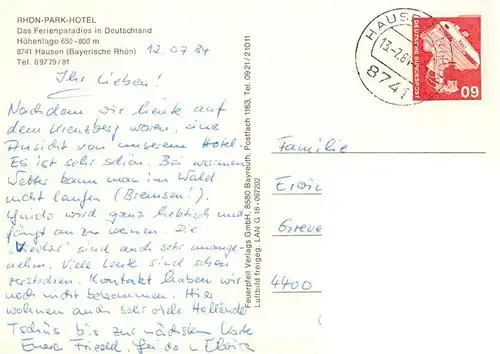 RHÖN-PARK-HOTEL
Das Ferienparadies in Deutschland
Höhenlage 650-800 m
8741 Hausen (Bayerische Rhön)
Tel. 09779/81
12.07.84
Ihr Lieben!
Nachdem wir heute auf
dem Kreuzberg waren, eine
Ansicht von unserem Hotel.
Es ist sehr schön. Bei warmem
Wetter kann man im Wald
nicht laufen (Bremsen!).
Guido wird ganz hektisch und
fängt an zu weinen. Die
"Viecher" sind auch sehr unange-
nehm. Viele Leute sind schon
zerstochen. Kontakt haben wir
noch nicht bekommen. Hier
wohnen auch sehr viele Holländer
Tschüs bis zur nächsten Karte
Eure Friedel,
Feuerpfeil Verlags GmbH, 8580 Bayreuth, Postfach 1163, Tel. 0921/21011
Luftbild freigeg. LAN G 16-067202
HAUSE
13.-7.84
8741
DEUTSCHE BUNDESPOST
60
Familie
Erwin
Greve
4400